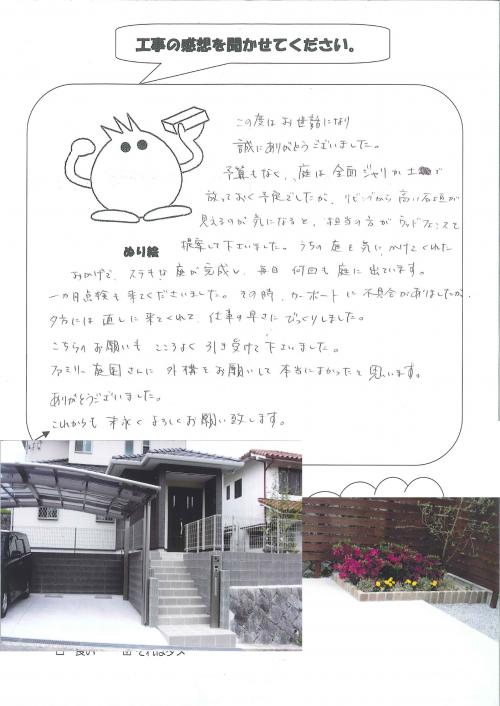 工事の感想を聞かせてください。
この度はお世話になり
誠にありがとうございました。
予算もなく、庭は全面ジャリか土で
放っておく予定でしたが、リビングから高い石垣が
見えるのが気になると、担当の方がウッドフェンスを
提案して下さいました。うちの庭を気にかけてくれた
ぬり絵
おかげで、ステキな庭が完成し、毎日何回も庭に出ています。
一ヵ月点検も来てくださいました。その時、カーポートに不具合がありましたが、
夕方には直しに来てくれて、仕事の早さにびっくりしました。
こちらのお願いも こころよく引き受けて下さいました。
ファミリー庭園さんに 外構をお願いして本当によかったと思います。
ありがとうございました。
これからも 末永く よろしくお願い致します。